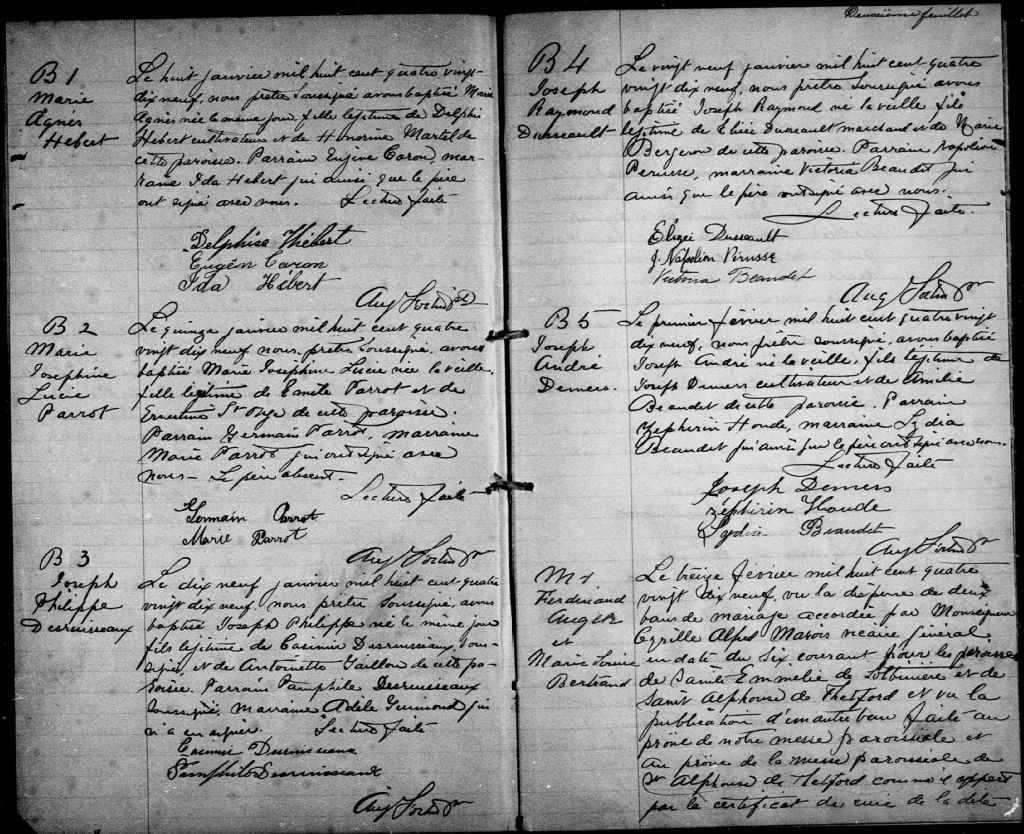 B 1
Marie
Agnès
Hebert
Le huit janvier mil huit cent quatre vingt-
dix neuf, nous prêtre soussigné avons baptisé Marie
Agnès née le même jour, fille légitime de Delphis
Hebert cultivateur et de Honorine Martel de
cette paroisse. Parrain Eugène Caron, mar-
raine Ida Hebert qui ainsi que le père
ont signé avec nous. Lecture faite
Delphice Hébert
Eugèn Caron
Ida Hébert
Aug
B 2
Marie
Josephine
Lucie
Parrot
Le quinze janvier mil huit cent quatre
vingt dix neuf nous, prêtre soussigné, avons
baptisé Marie Josephine Lucie née la veille,
fille légitime de Emile Parrot et de
Ernestine St Onge de cette paroisse.
Parrain Germain Parrot, marraine
Marie Parrot qui ont signé avec
nous - Le père absent.
Lecture faite -
Germain Parrot
Marie Parrot
Aug
B 3
Joseph
Philippe
Desruisseaux
Le dix neuf janvier mil huit cent quatre
vingt dix neuf, nous prêtre soussigné, avons
baptisé Joseph Philippe né le même jour
fils légitime de Casimir Desruisseaux, sous-
signé, et de Antoinette de cette pa-
roisse. Parrain Pamphile Desruisseaux
soussigné, marraine Adèle qui
n'a su signer. Lecture faite
Casimir Desruisseaux
Pamphile Desruisseaux
Aug
Deuxième feuillet
B 4
Joseph
Raymond
Dusseault
Le vingt neuf janvier mil huit cent quatre
vingt dix neuf, nous prêtre soussigné avons
baptisé Joseph Raymond né la veille fils
légitime de Elisée Dusseault marchand et de Marie
Bergeron de cette paroisse. Parrain Napoléon
Perusse, marraine Victoria Beaudet qui
ainsi que le père ont signé avec nous.
Lecture faite.
Elizée Dusseault
J. Napoléon Pérusse
Victoria Beaudet
Aug
B 5
Joseph
André
Demers
Le premier février mil huit cent quatre vingt
dix neuf, nous prêtre soussigné, avons baptisé
Joseph André né la veille, fils légitime de
Joseph Demers cultivateur et de Amélie
Beaudet de cette paroisse. Parrain
Zéphirin Houde, marraine Lydia
Beaudet qui ainsi que le père ont signé avec nous.
Lecture faite
Joseph Demers
Zéphirin Houde
Lydia Beaudet
Aug
M 1
Ferdinand
Auger
et
Marie Louise
Bertrand
Le treize février mil huit cent quatre
vingt dix neuf, vu la dispense de deux
bans de mariage accordée par Monseigneur
Cyrille Alfred Marois vicaire Général
en date du six courant pour les paroisses
de Sainte Emmélie de Lotbinière et de
Saint Alphonse de Thetford et vu la
publication d'un autre ban faite au
prône de notre messe paroissiale et
au prône de la messe paroissiale de
St Alphonse de Thetford comme il appert
par le certificat du curé de la dite